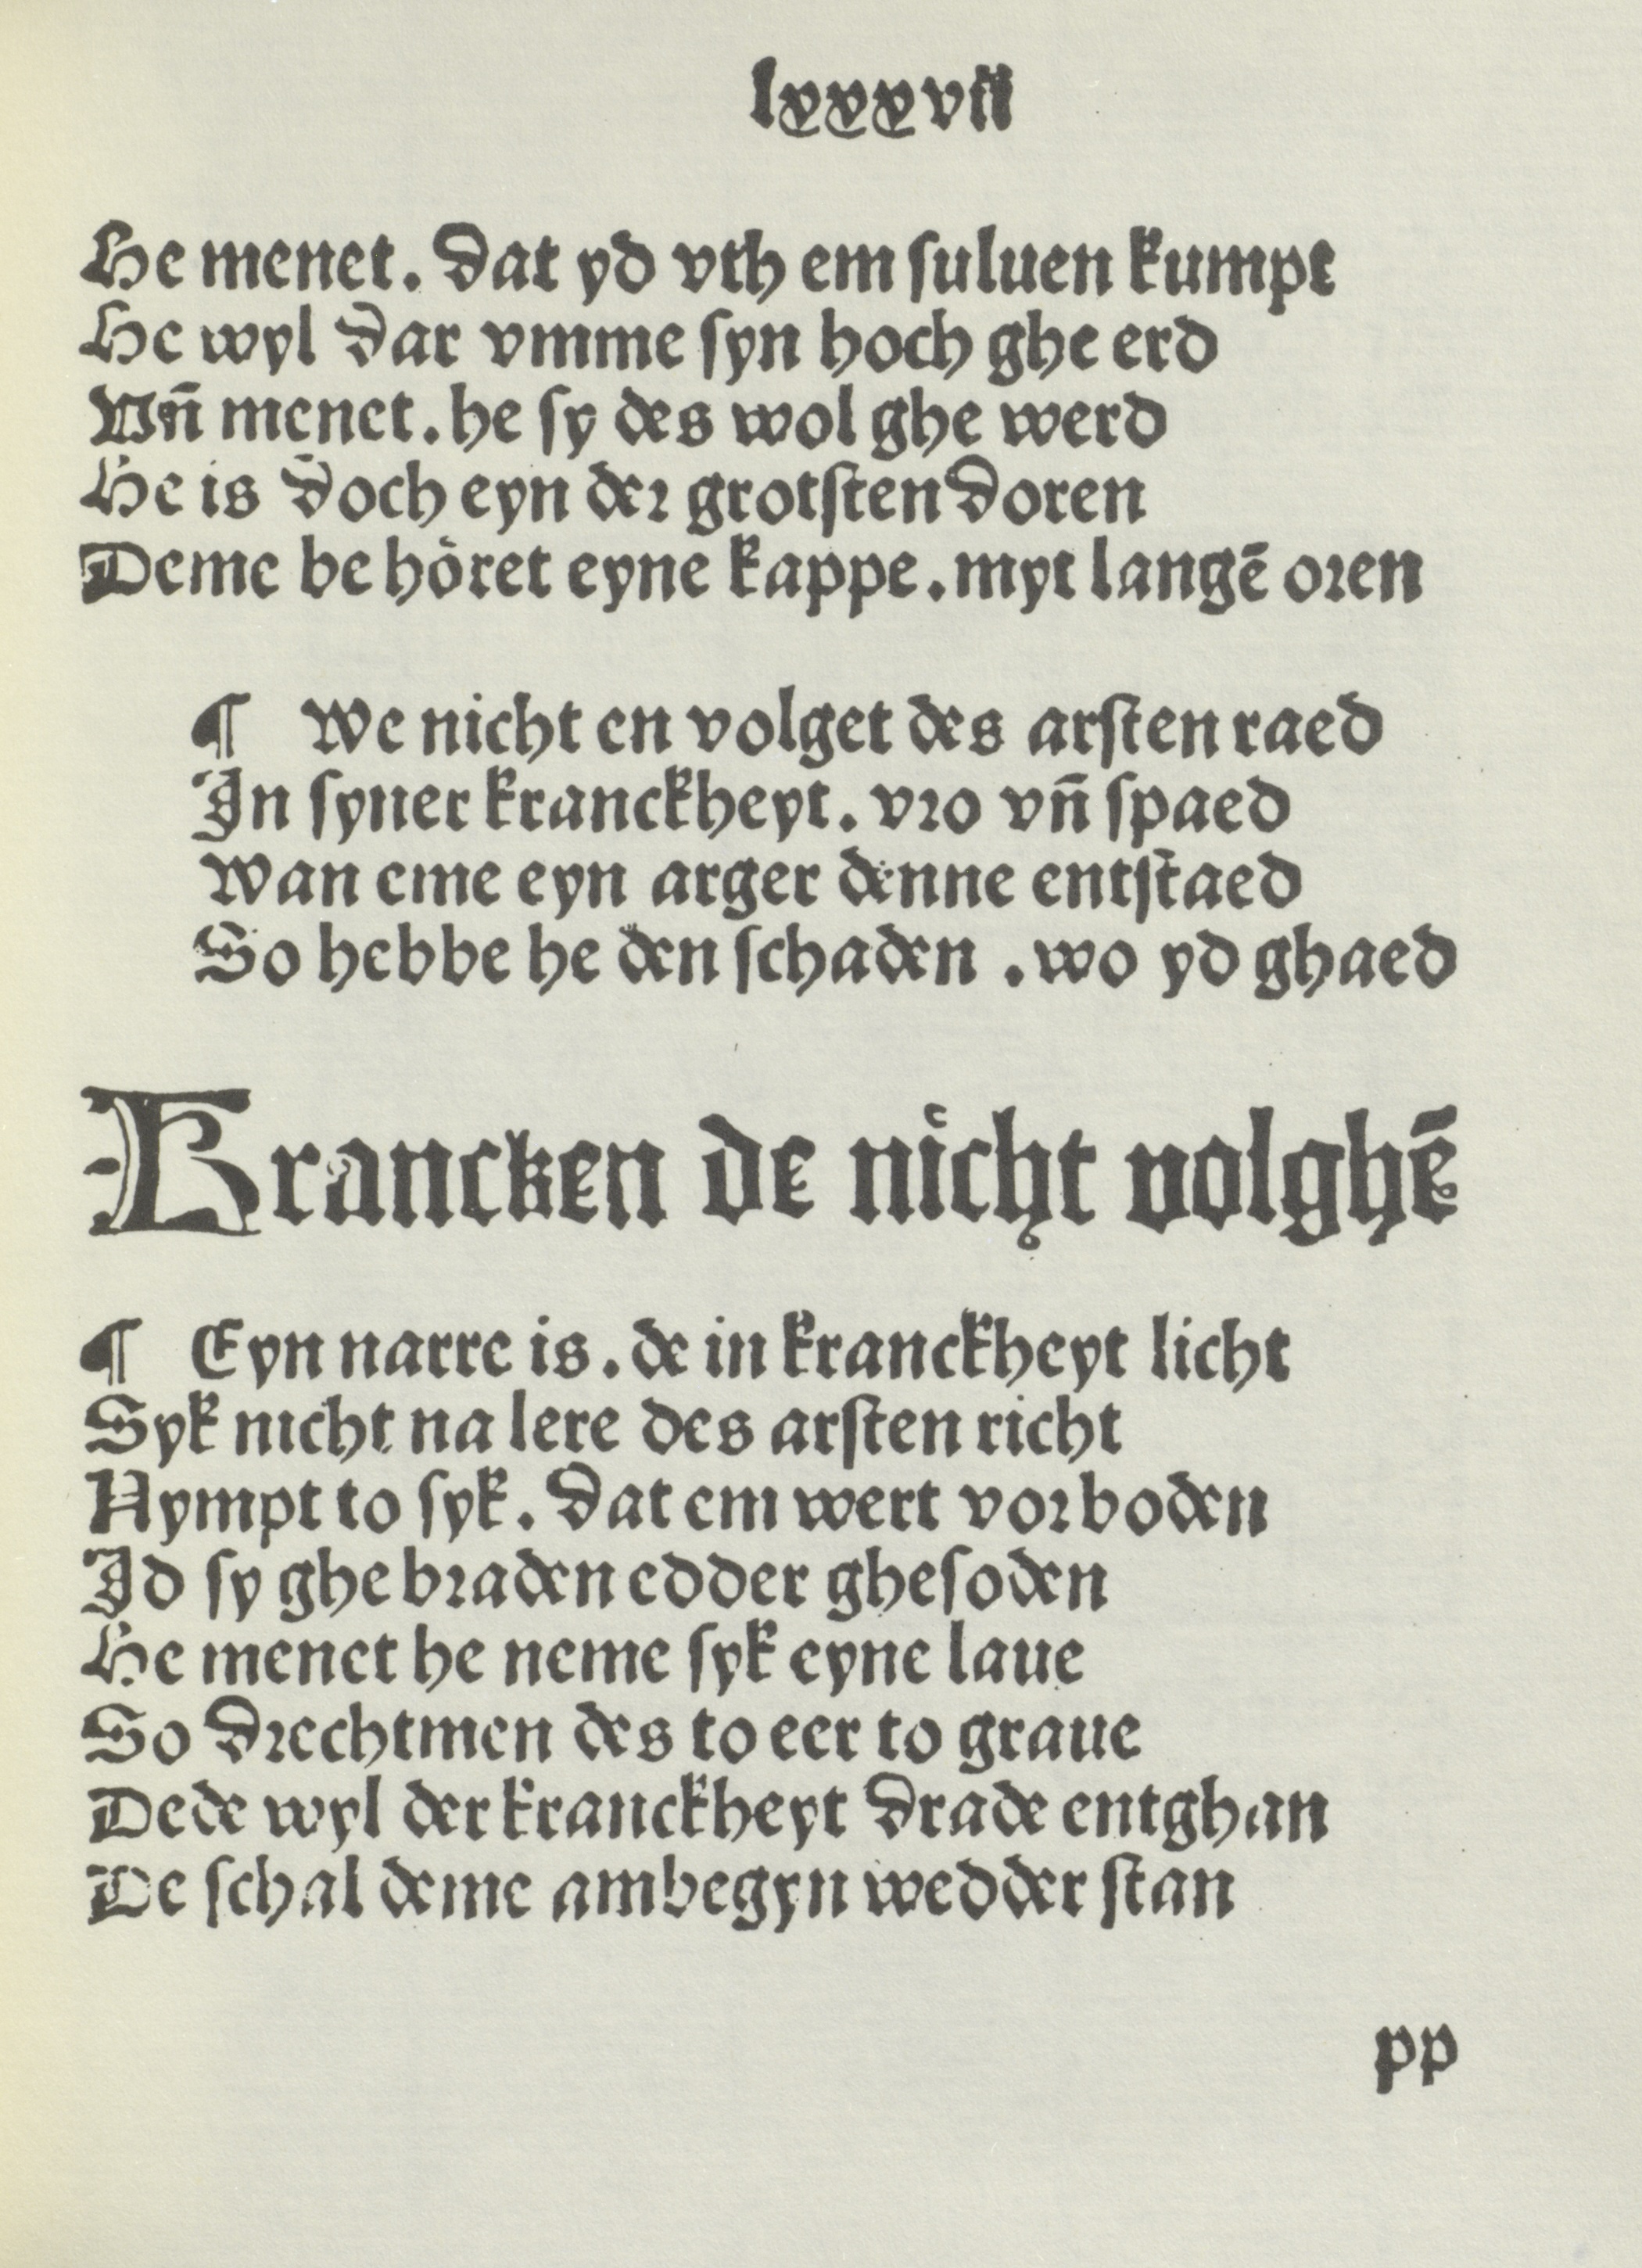 lxxxvii
He menet. dat yd vth em ſuluen kumpt
He wyl dar vmme ſyn hoch ghe erd
Vn̄ menet. he ſy des wol ghe werd
He is doch eyn der grotſten doren
Deme be hoͤret eyne kappe. myt langē oren
¶ We nicht en volget des arſten raed
In ſyner kranckheyt. vro vn̄ ſpaed
Wan eme eyn arger denne entſtaed
So hebbe he den ſchaden . wo yd ghaed
Krancken de nicht volghē
¶ Eyn narre is. de in kranckheyt licht
Syk nicht na lere des arſten richt
Nympt to ſyk. dat em wert vorboden
Id ſy ghe braden edder gheſoden
He menet he neme ſyk eyne laue
So drechtmen des to eer to graue
Dede wyl der kranckheyt drade entghan
De ſchal deme ambegyn wedder ſtan
pp